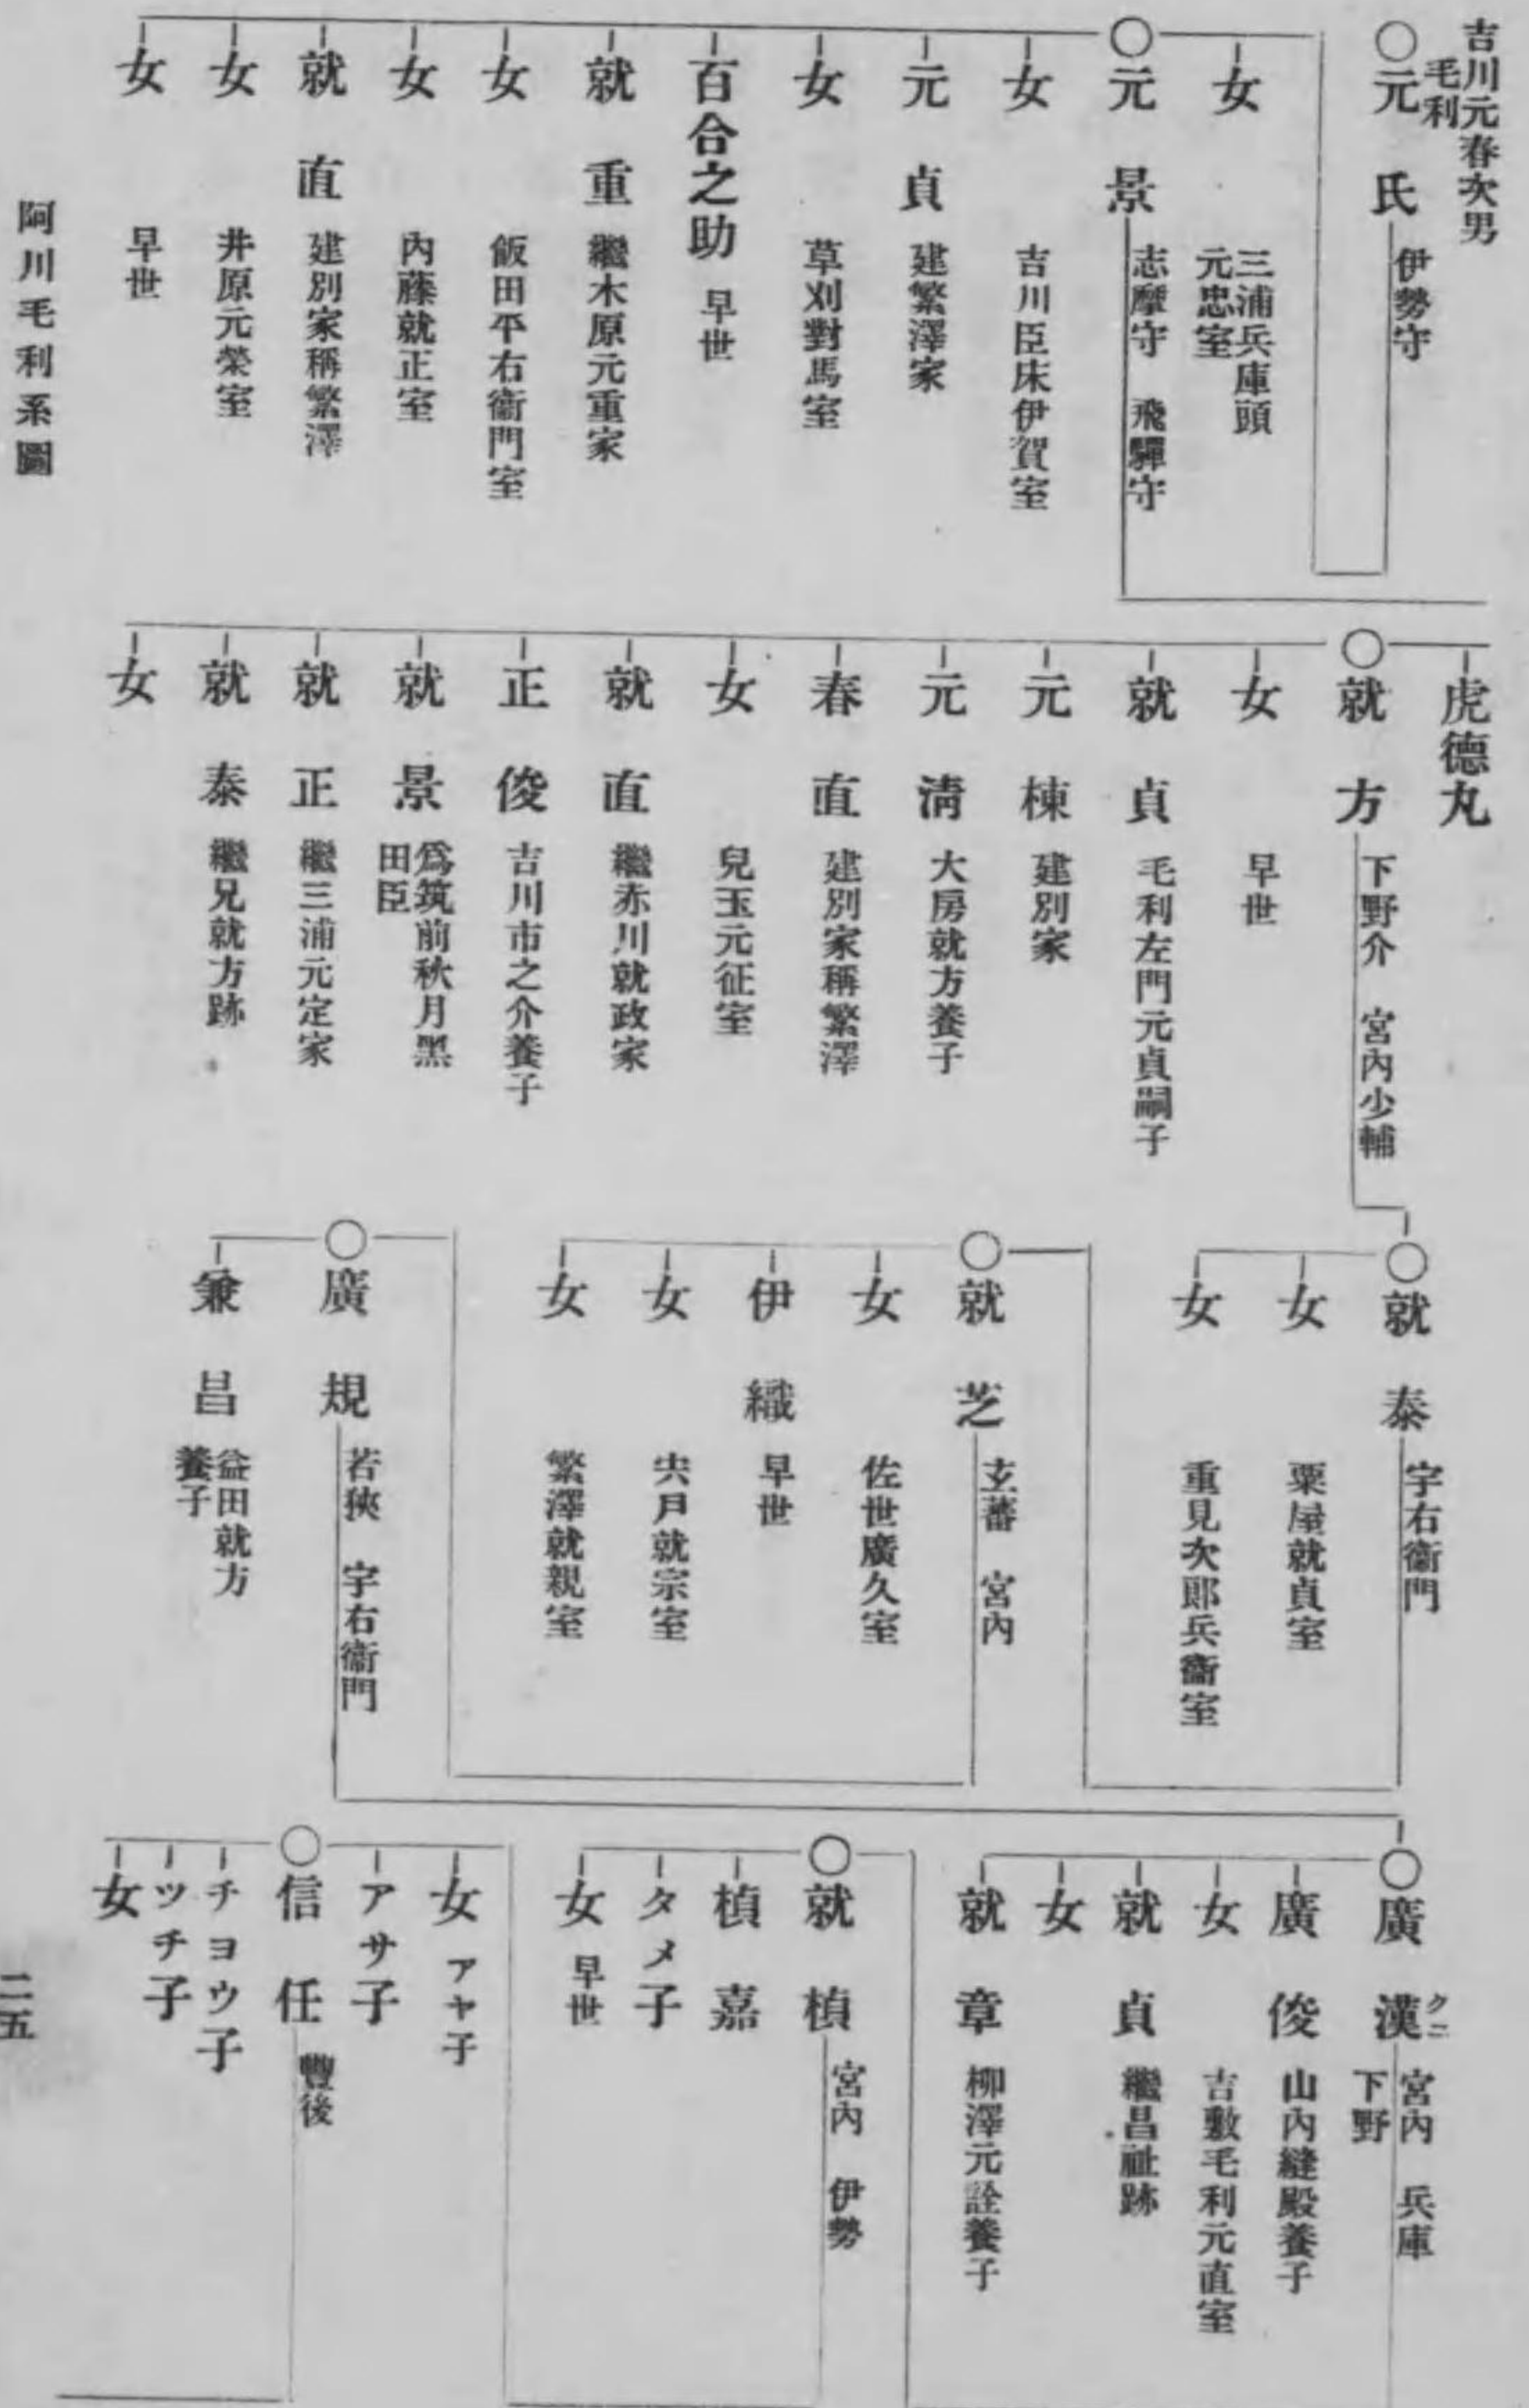 吉川元春次男
毛利
〇元氏 伊勢守
女 三浦兵庫頭
元忠室
〇元景 志摩守 飛驒守
女 吉川臣床伊賀室
元貞 建繁澤家
女 草刈對馬室
百合之助 早世
就重 繼木原元重家
女 飯田平右衞門室
女 內藤就正室
就直 建別家稱繁澤
女 井原元榮室
女 早世
虎德丸
〇就方 下野介 宮內少輔
女 早世
就貞 毛利左門元貞嗣子
元棟 建別家
元淸 大房就方養子
春直 建別家稱繁澤
女 兒玉元征室
就直 繼赤川就政家
正俊 吉川市之介養子
就景 爲筑前秋月黑
田臣
就正 繼三浦元定家
就泰 繼兄就方跡
女
〇就泰 宇右衞門
女 粟屋就貞室
女 重見次郞兵衞室
〇就芝 玄蕃 宮內
女 佐世廣久室
伊織 早世
女 宍戶就宗室
女 繁澤就親室
〇廣規 若狹 宇右衞門
兼昌 益田就方
養子
〇廣漢 クニ 宮內 兵庫
下野
廣俊 山內縫殿養子
女 吉敷毛利元直室
就貞 繼昌祉跡
女
就章 柳澤元詮養子
〇就楨 宮內 伊勢
楨嘉
タメ子
女 早世
女 アヤ子
アサ子
〇信任 豐後
チヨウ子
ツチ子
女
阿川毛利系圖
二五